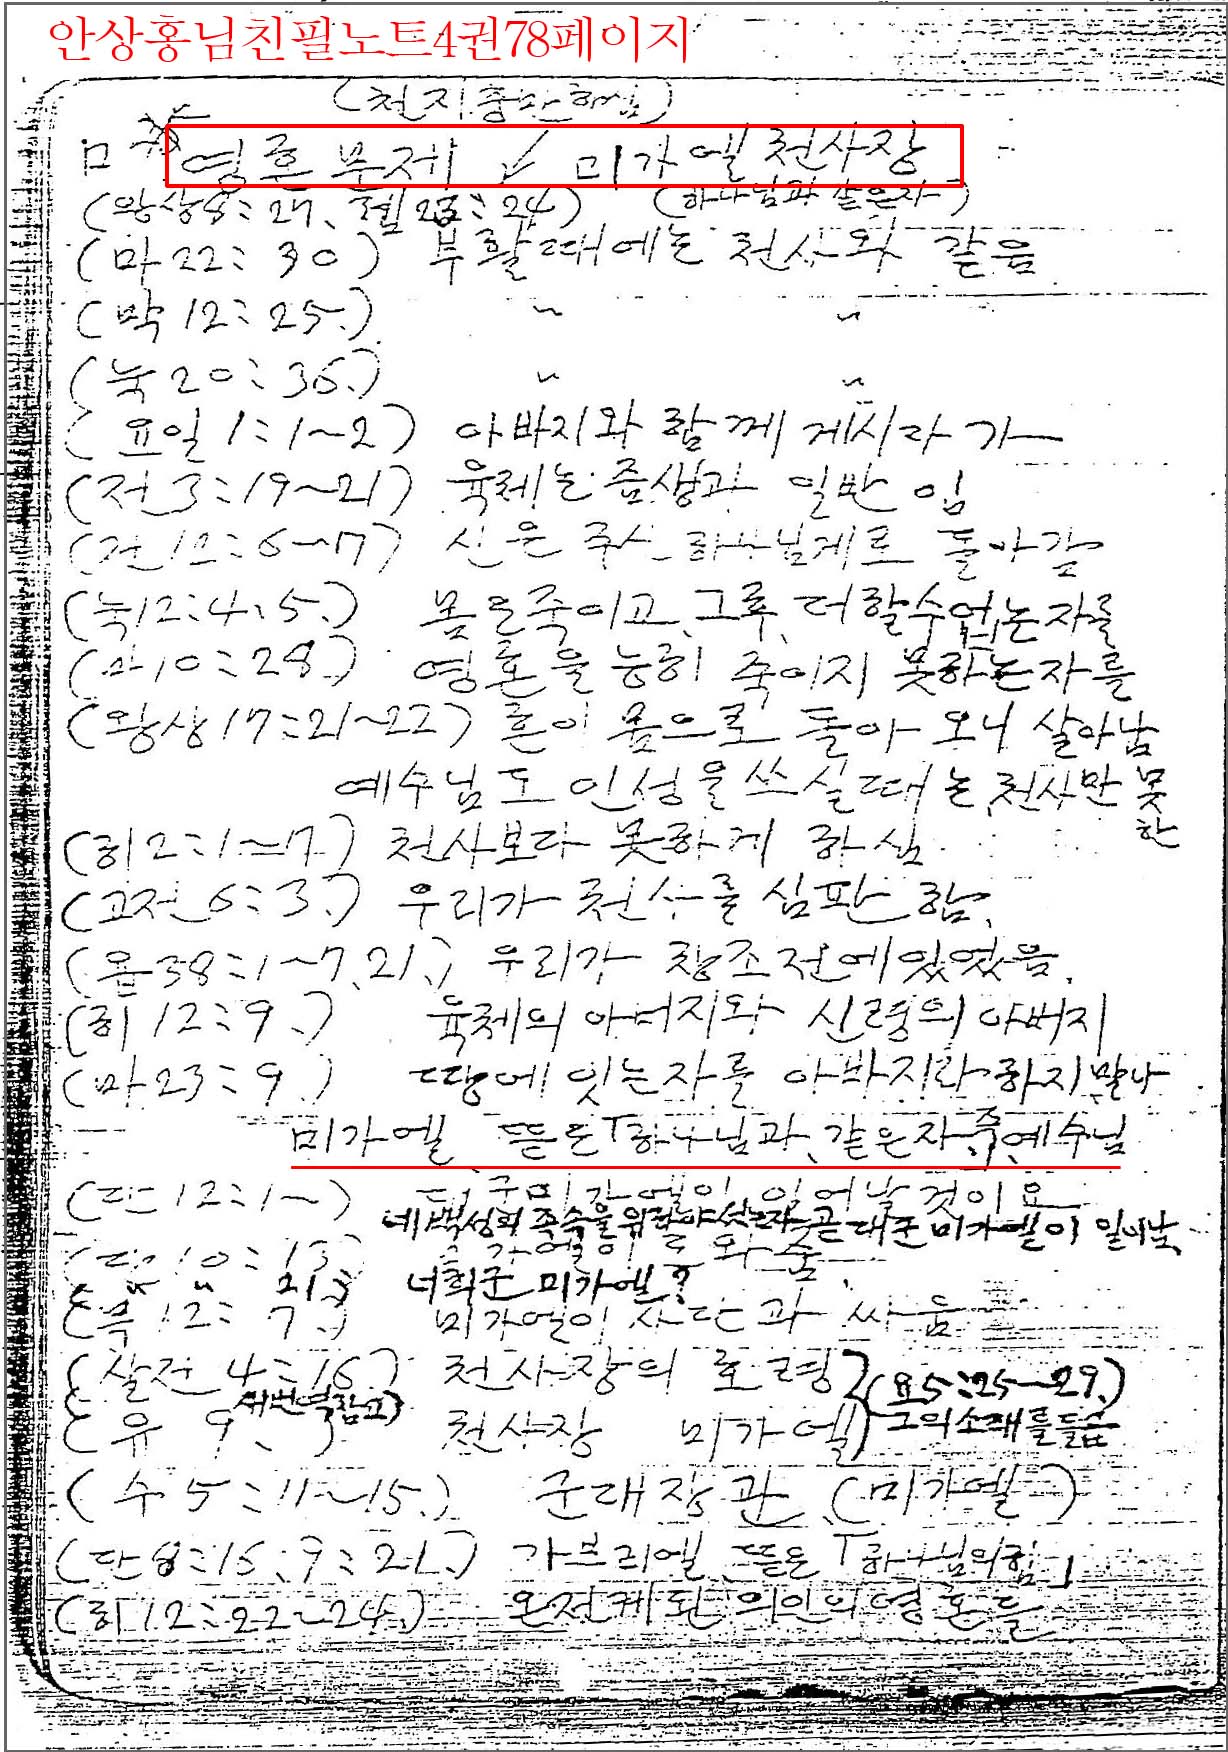 안상홍님친필노트4권78페이지
(천지충만하심)
ㅁ 영혼문제 ✓ 미가엘천사장
(왕상8:27、렘23:24) (하나님과 같은자)
(마22:30) 부활때에는 천사와 같음
(막12:25.) 〃 〃
(눅20:36.) 〃 〃
(요일1:1~2) 아바지와 함께 게시다가
(전3:19~21) 육체는 즘생과 일반임
(전12:6~7) 신은 주신 하나님게로 돌아감
(눅12:4、5.) 몸은죽이고、그후、더할수업는자를
(마10:28.) 영혼을 능히 죽이지 못하는자를
(왕상17:21~22) 혼이 몸으로 돌아 오니 살아남
예수님도 인성을 쓰실때는 천사만 못한
(히2:1~7.) 천사보다 못하게 하심
(고전6:3.) 우리가 천사를 심판 함.
(욥38:1~7、21.) 우리가 창조전에있었음.
(히12:9.) 육체의 아버지와 신령의 아버지
(마23:9.) 땅에 잇는자를 아바지라하지 말나
미가엘 뜻은「하나님과、같은자、즉、예수님
(단12:1~) 대군미가엘이 일어날것이요
네백성의 족속을 곧 대군 미가엘이 일어남
(단10:13) 와 줌.
(〃 〃 21.) 너희군 미가엘?
(묵12:7.) 미가엘이 사단과 싸움
(살전4:16) 천사장의 호령 (요5:25~29.)
(유9.) 새번역참고) 천사장 미가엘 그의소래를들음
(수5:11~15.) 군대장관 (미가엘)
(단8:16、9:21.) 가브리엘 뜻은「하나님의힘」
(히12:22~24.) 온전케된 의인의영혼들